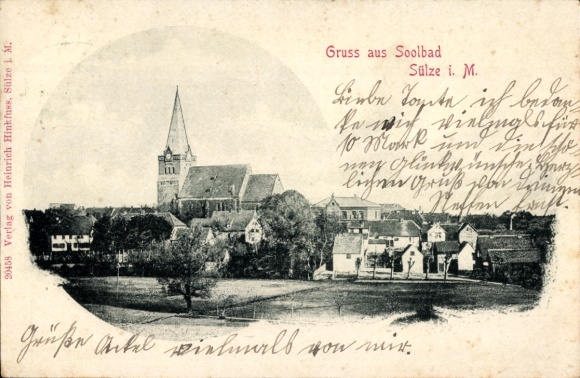 Gruss aus Soolbad
Sülze i. M.
20458 Verlag von Heinrich Hinkfuss, Sülze i. M.
Liebe Tante ich bedan-
ke mich vielmals für
10 Mark um die schö-
nen Glückwünsche. Herz-
lichen Gruß von Deinem
Neffen
Grüße Onkel vielmals von mir.